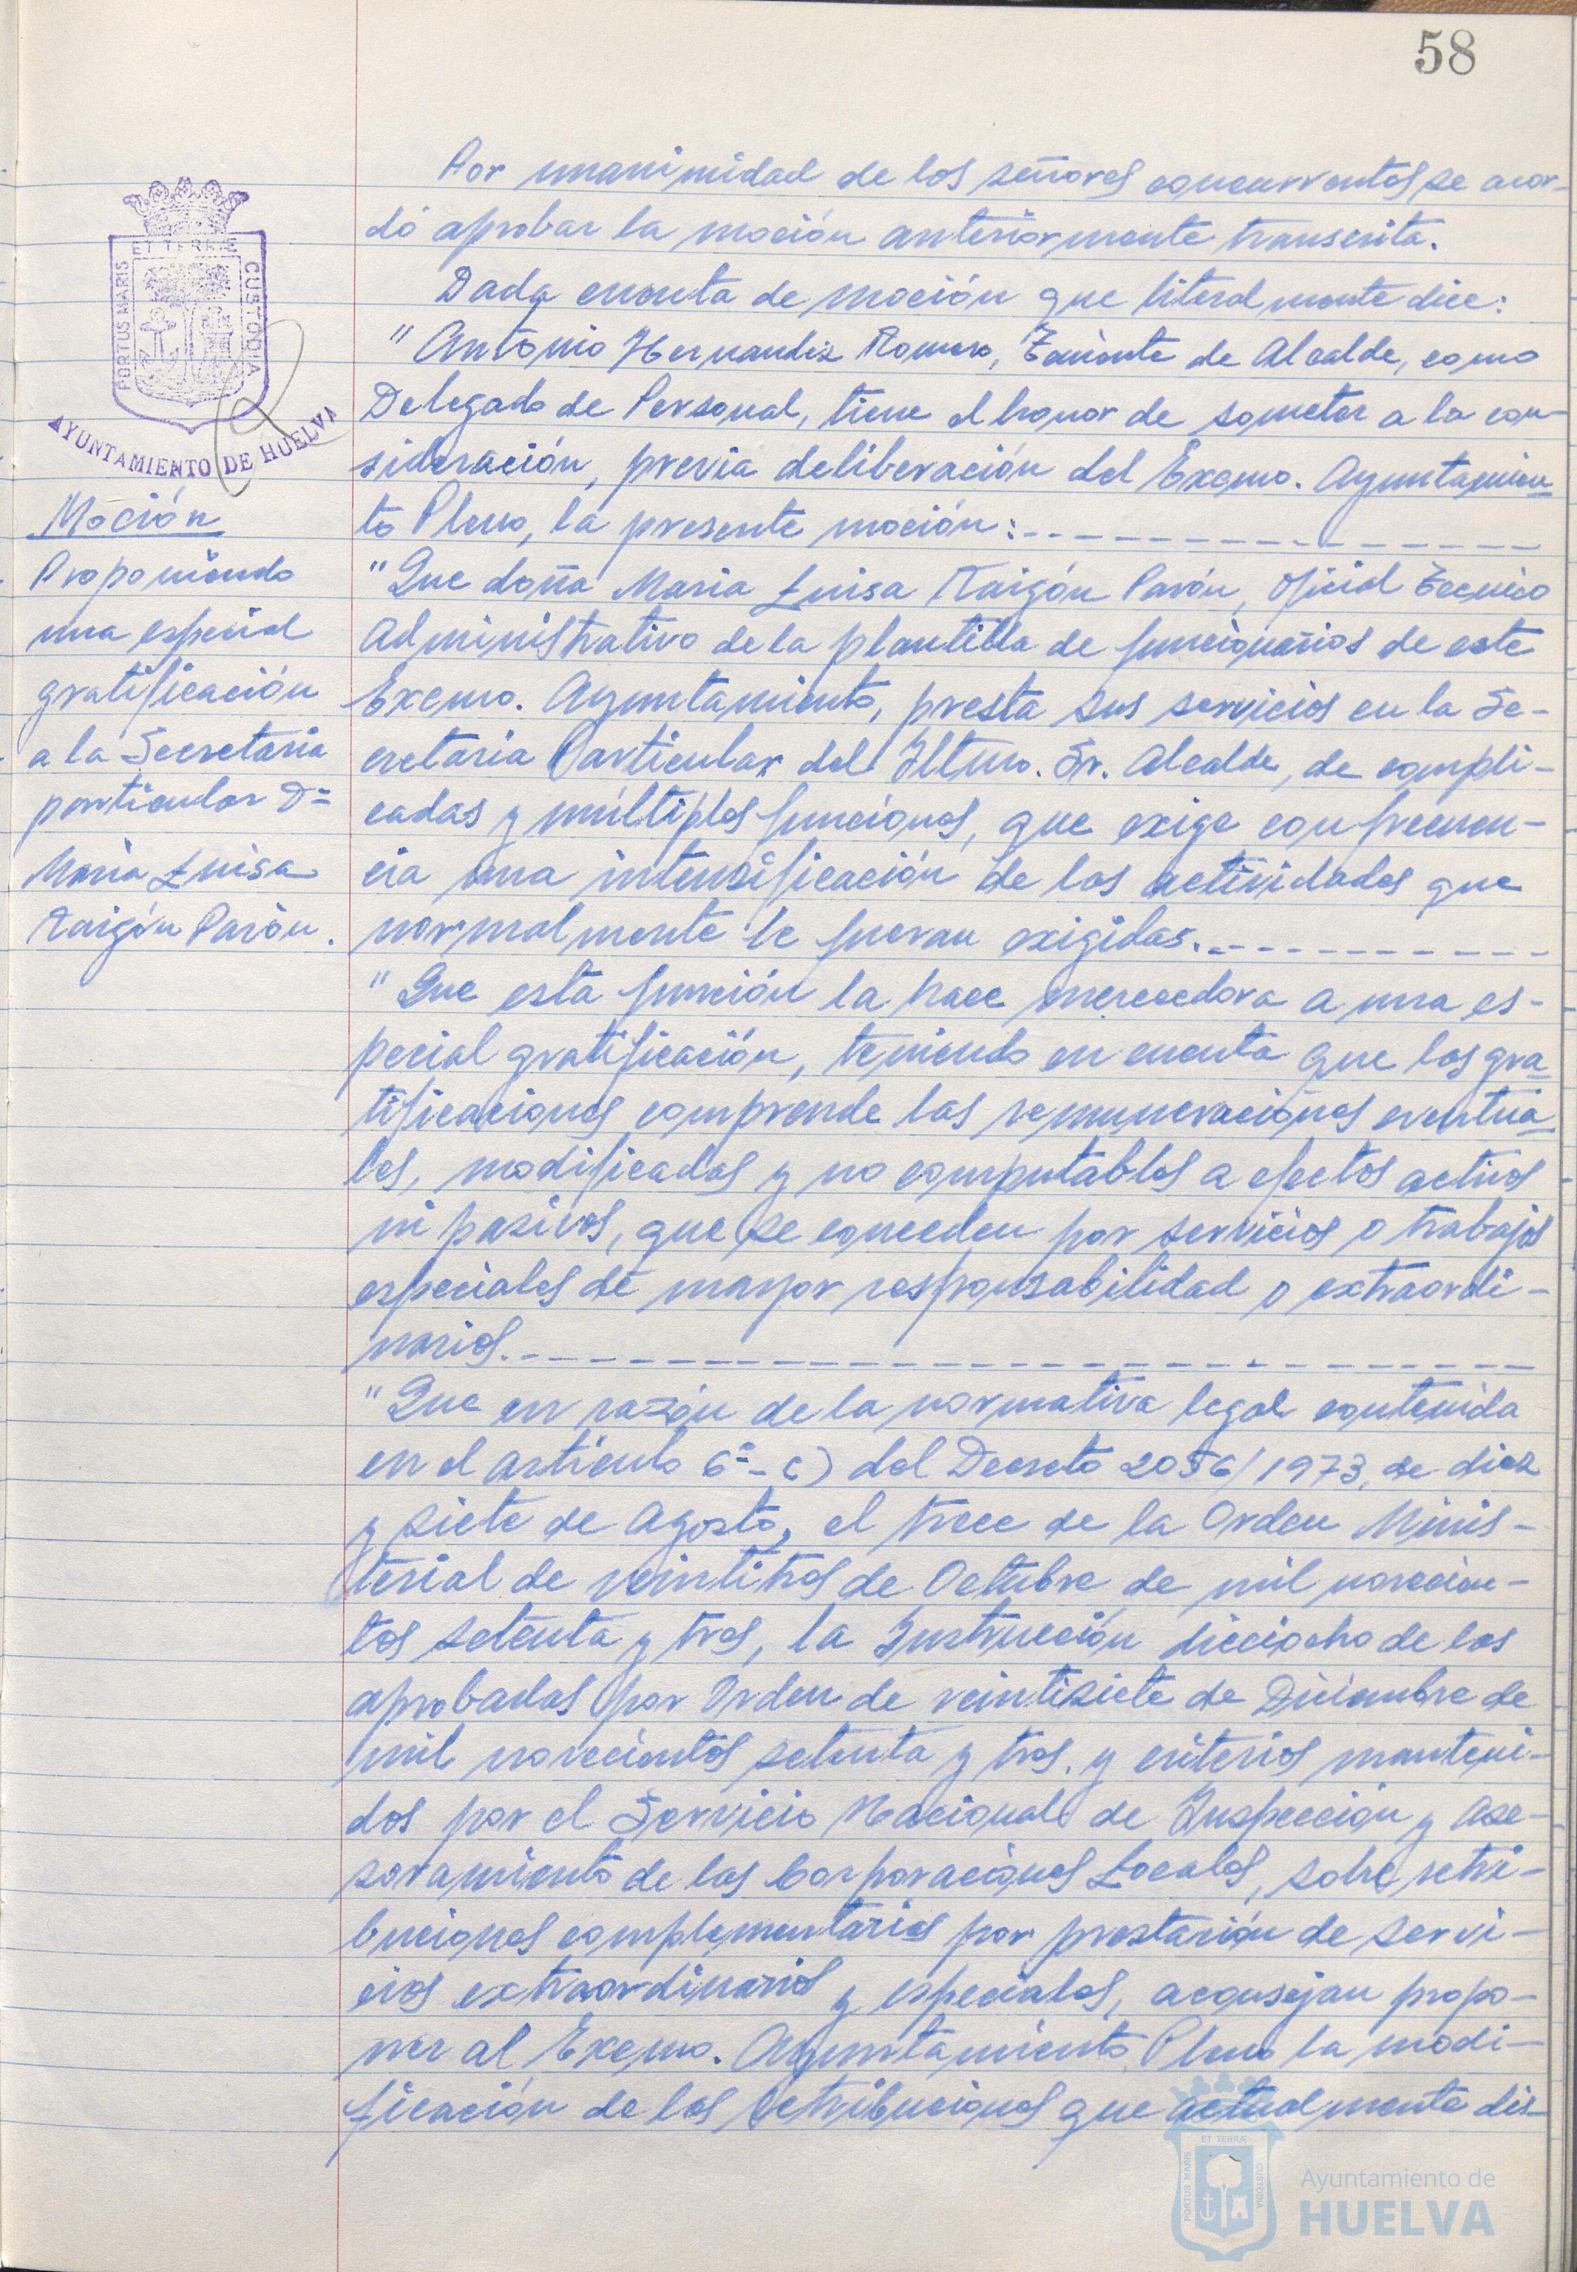 58
Por unanimidad de los señores concurrentes se acor-
dó aprobar la moción anteriormente transcrita.
Dada cuenta de moción que literalmente dice:
"Antonio Hernandez Romero, Teniente de Alcalde, como
Delegado de Personal, tiene el honor de someter a la con-
sideración, previa deliberación del Excmo. Ayuntamien-
to Pleno, la presente moción:
"Que doña Maria Luisa Raigón Pavón, Oficial Tecnico
Administrativo de la plantilla de funcionarios de este
Excmo. Ayuntamiento, presta sus servicios en la Se-
cretaria Particular del Iltmo. Sr. Alcalde, de compli-
cadas y múltiples funciones, que exige con frecuen-
cia una intensificación de las actividades que
normalmente le fueran exigidas.
"Que esta función la hace merecedora a una es-
pecial gratificación, teniendo en cuenta que las gra-
tificaciones comprende las remuneraciones eventua-
les, modificadas y no computables a efectos activos
ni pasivos, que se conceden por servicios o trabajos
especiales de mayor responsabilidad o extraordi-
narios.
"Que en razón de la normativa legal contenida
en el articulo 6º-c) del Decreto 2056/1973, de diez
y siete de Agosto, el trece de la Orden Minis-
terial de veintitres de Octubre de mil novecien-
tos setenta y tres, la Instrucción dieciocho de las
aprobadas por Orden de veintisiete de Diciembre de
mil novecientos setenta y tres, y criterios manteni-
dos por el Servicio Nacional de Inspección y Ase-
soramiento de las Corporaciones Locales, sobre retri-
buciones complementarias por prestación de servi-
cios extraordinarios y especiales, aconsejan propo-
ner al Excmo. Ayuntamiento Pleno la modi-
ficación de las retribuciones que actualmente dis-
ET TERRÆ
PORTUS MARIS
CUSTODIA
AYUNTAMIENTO DE HUELVA
Moción
Proponiendo
una especial
gratificación
a la Secretaria
particular Dª
Maria Luisa
Raigón Pavón.
ET TERRÆ
PORTUS MARIS
CUSTODIA
Ayuntamiento de
HUELVA